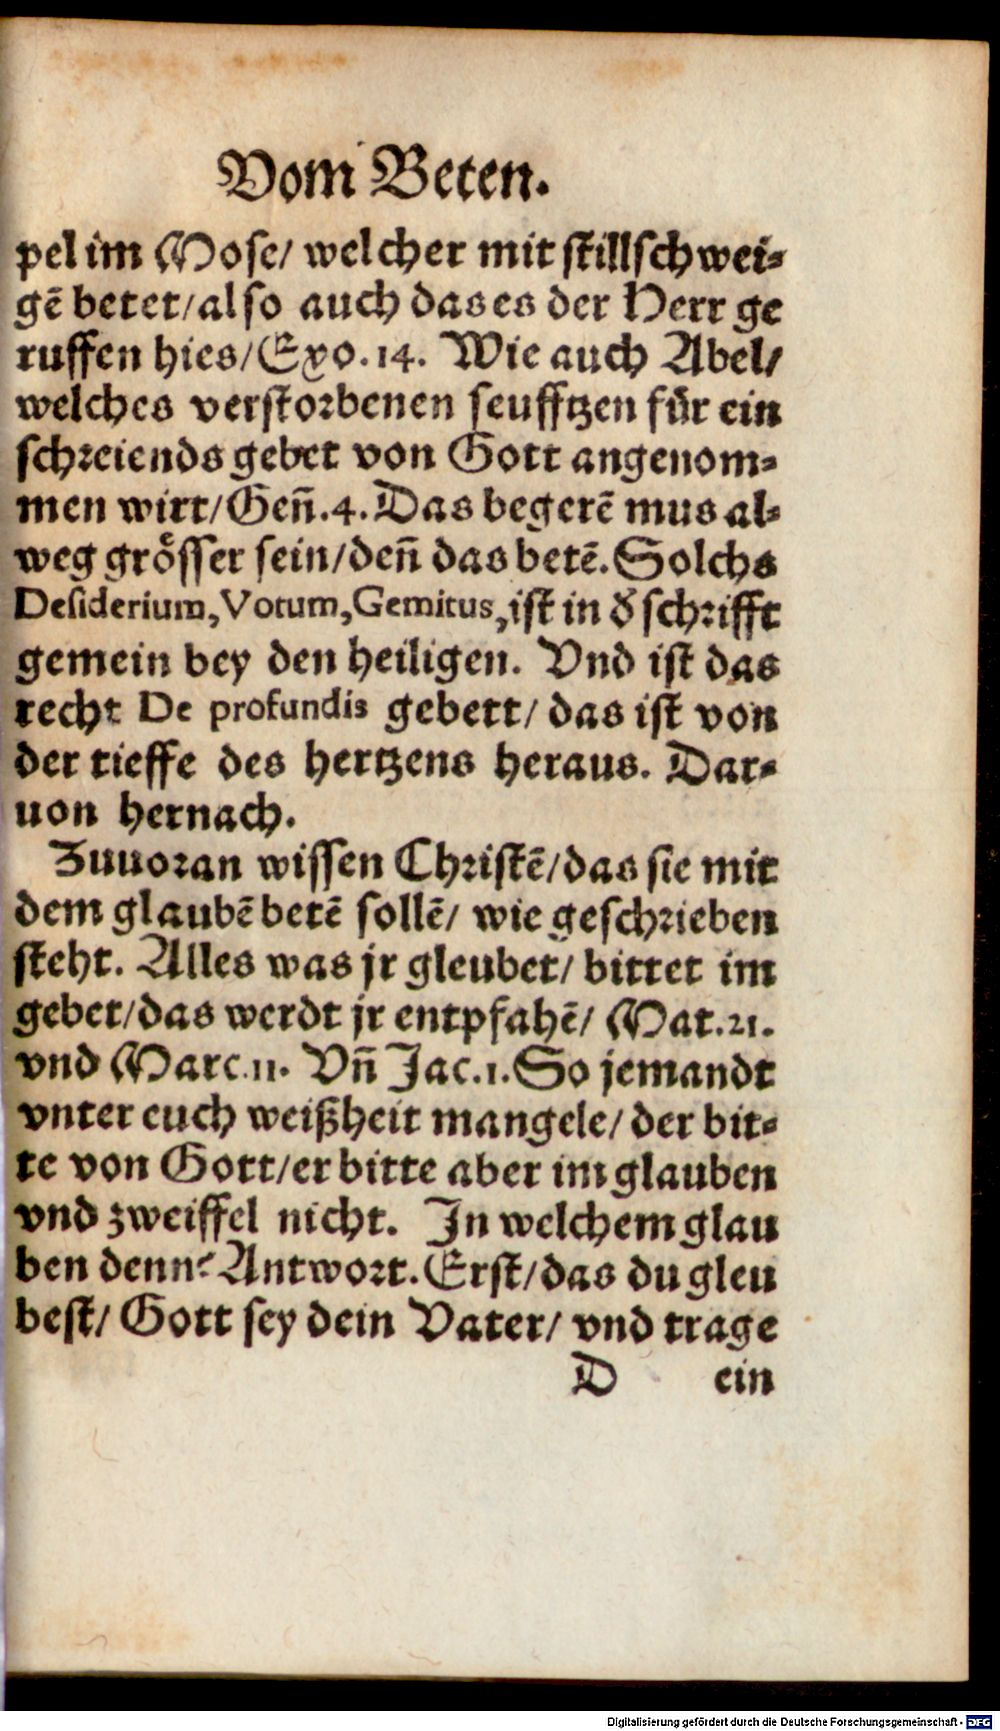 Vom Beten.
pel im Mose/ welcher mit stillschwei⸗
gē betet/also auch das es der Herr ge
ruffen hies/Exo.14. Wie auch Abel/
welches verstorbenen seufftzen für ein
schreiends gebet von Gott angenom⸗
men wirt/Geñ.4. Das begerē mus al⸗
weg grösser sein/deñ das betē. Solchs
Desiderium, Votum, Gemitus, ist in d̕ schrifft
gemein bey den heiligen. Vnd ist das
recht De profundis gebett/ das ist von
der tieffe des hertzens heraus. Dar⸗
uon hernach.
Zuuoran wissen Christē/das sie mit
dem glaubē betē sollē/ wie geschrieben
steht. Alles was jr gleubet/ bittet im
gebet/das werdt jr entpfahē/ Mat.21.
vnd Marc.11. Vñ Jac.1. So jemandt
vnter euch weißheit mangele/ der bit⸗
te von Gott/er bitte aber im glauben
vnd zweiffel nicht. In welchem glau
ben denn? Antwort. Erst/das du gleu
best/ Gott sey dein Vater/ vnd trage
D ein
Digitalisierung gefördert durch die Deutsche Forschungsgemeinschaft - DFG